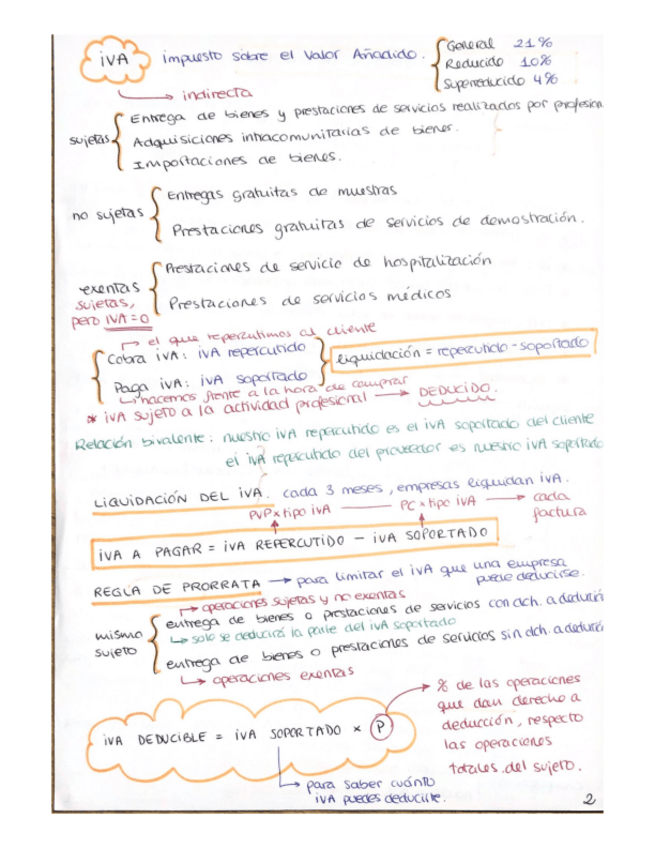 iVA impuesto sobre el Valor Añadido. General 21%
Reducido 10%
Superreducido 4%
indirecta
sujetas Entrega de bienes y prestaciones de servicios realizados por profesion
Adquisiciones intracomunitarias de bienes.
Importaciones de bienes.
no sujetas Entregas gratuitas de muestras
Prestaciones gratuitas de servicios de demostración.
exentas Prestaciones de servicio de hospitalización
sujetas,
pero IVA=0 Prestaciones de servicios médicos
el que repercutimos al cliente
Cobra iVA: iVA repercutido
Liquidación = repercutido - soportado
Paga iVA: iVA soportado
hacemos frente a la hora de comprar
* iVA sujeto a la actividad profesional → DEDUCIDO.
Relación bivalente: nuestro iVA repercutido es el iVA soportado del cliente
el iVA repercutido del proveedor es nuestro iVA soportado
LIQUIDACIÓN DEL iVA. cada 3 meses, empresas liquidan iVA.
PVP x tipo iVA — PC x tipo iVA → cada
factura
iVA A PAGAR = iVA REPERCUTIDO - iVA SOPORTADO
REGLA DE PRORRATA → para limitar el iVA que una empresa
puede deducirse.
operaciones sujetas y no exentas
mismo
sujeto entrega de bienes o prestaciones de servicios con dch. a deducció
solo se deducirá la parte del iVA soportado
entrega de bienes o prestaciones de servicios sin dch. a deducció
operaciones exentas
iVA DEDUCIBLE = iVA SOPORTADO x P
% de las operaciones
que dan derecho a
deducción, respecto
las operaciones
totales del sujeto.
para saber cuánto
iVA puedes deducirte.
2